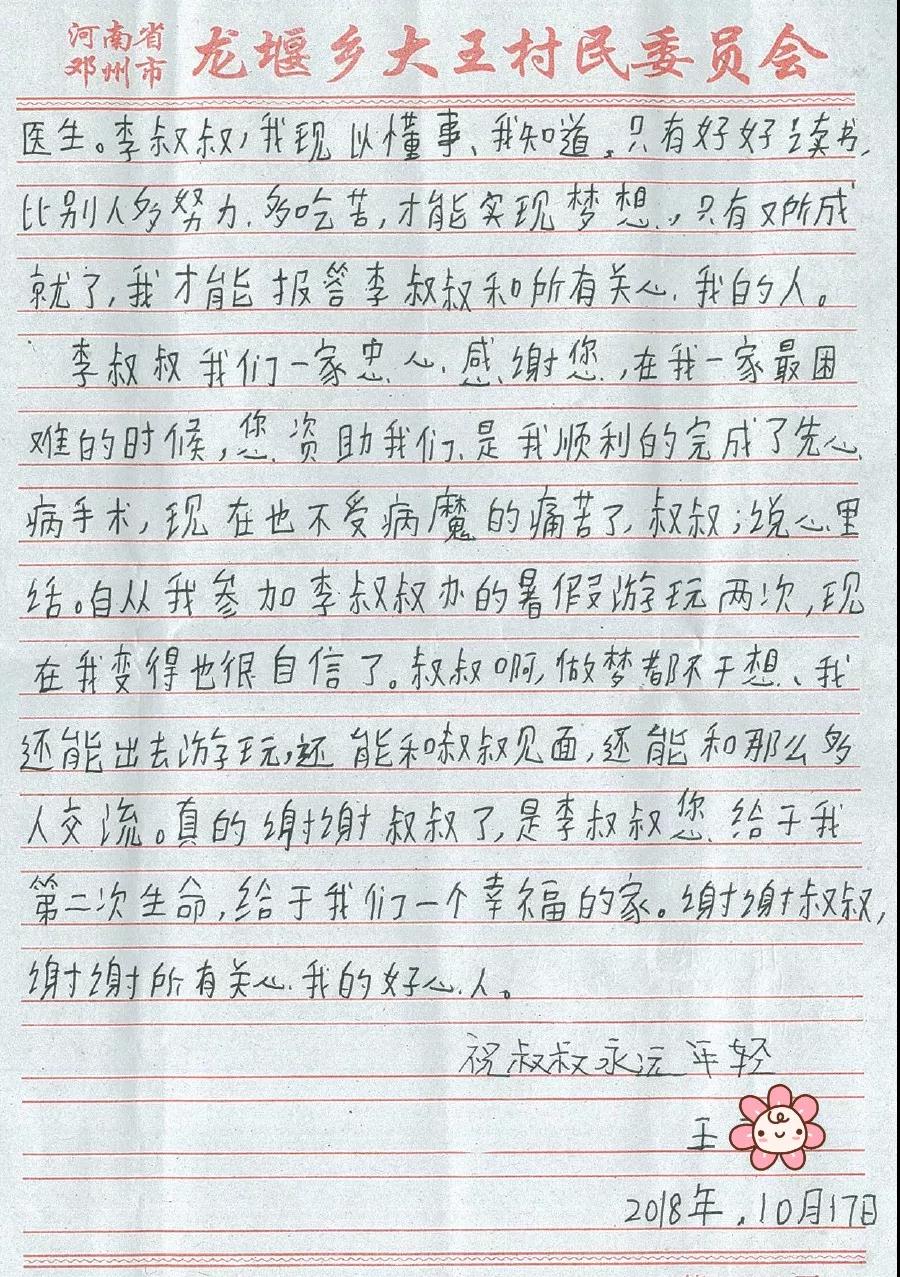 河南省
邓州市
龙堰乡大王村民委员会
医生。李叔叔，我现以懂事、我知道，只有好好读书，
比别人多努力，多吃苦，才能实现梦想，只有又所成
就了，我才能报答李叔叔和所有关心我的人。
李叔叔我们一家忠心感谢您，在我一家最困
难的时候，您资助我们，是我顺利的完成了先心
病手术，现在也不受病魔的痛苦了，叔叔；说心里
话。自从我参加李叔叔办的暑假游玩两次，现
在我变得也很自信了。叔叔啊，做梦都不干想、我
还能出去游玩，还能和叔叔见面，还能和那么多
人交流。真的谢谢叔叔了，是李叔叔您给于我
第二次生命，给于我们一个幸福的家。谢谢叔叔，
谢谢所有关心我的好心人。
祝叔叔永远年轻
王
2018年.10月17日